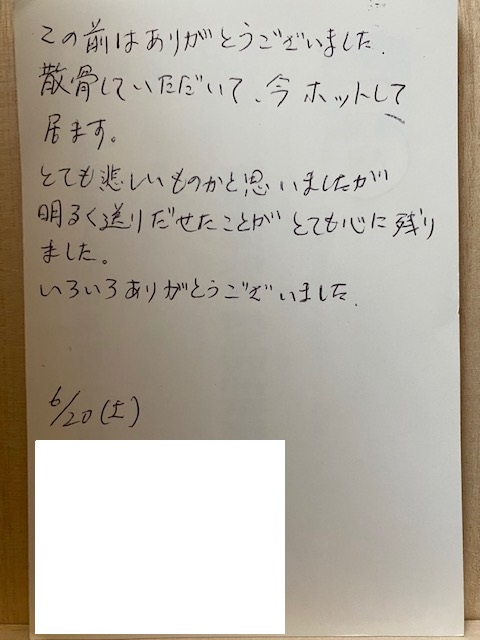 この前はありがとうございました.
散骨していただいて、今ホットして
居ます。
とても悲しいものかと思いましたが
明るく送りだせたことがとても心に残り
ました。
いろいろありがとうございました.
6/20(土)